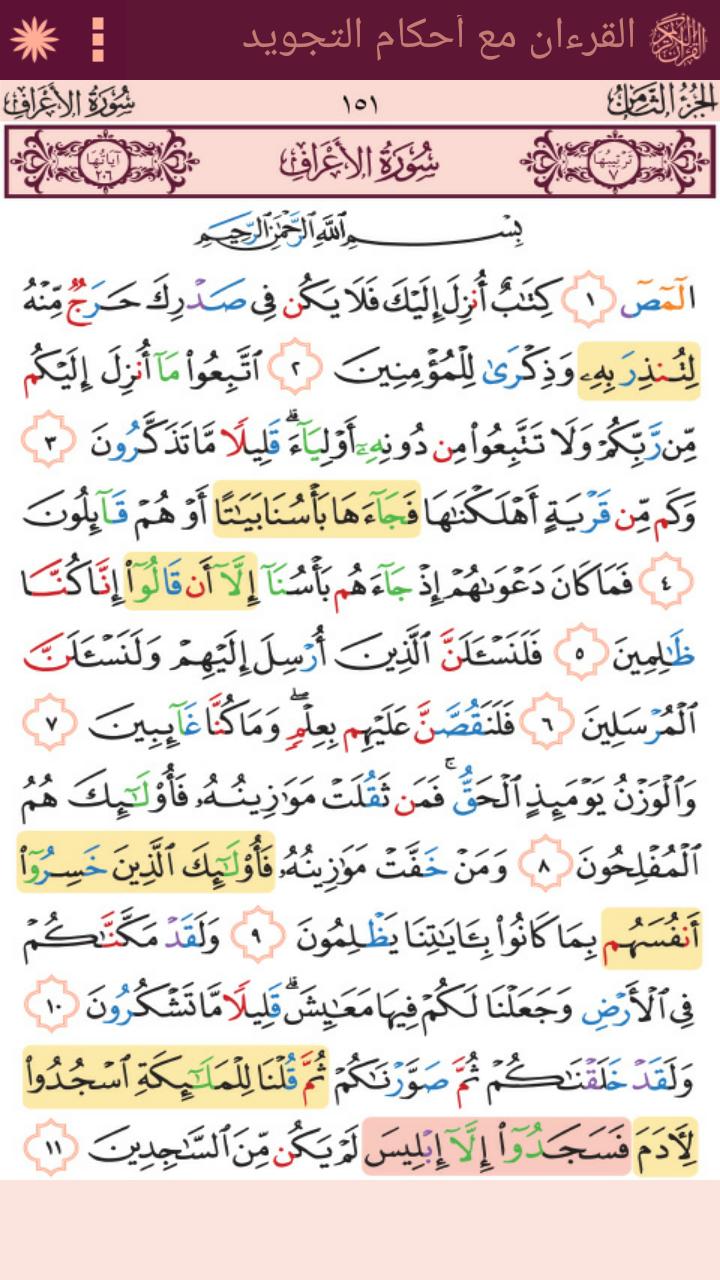 القرءان مع أحكام التجويد
الجزء الثامن ١٥١ سورة الأعراف
ترتيبها ٧ سورة الأعراف آياتها ٢٠٦
بِسْمِ ٱللَّهِ ٱلرَّحْمَٰنِ ٱلرَّحِيمِ
الٓمٓصٓ ١ كِتَٰبٌ أُنزِلَ إِلَيْكَ فَلَا يَكُن فِى صَدْرِكَ حَرَجٌ مِّنْهُ
لِتُنذِرَ بِهِۦ وَذِكْرَىٰ لِلْمُؤْمِنِينَ ٢ ٱتَّبِعُوا۟ مَآ أُنزِلَ إِلَيْكُم
مِّن رَّبِّكُمْ وَلَا تَتَّبِعُوا۟ مِن دُونِهِۦٓ أَوْلِيَآءَ ۗ قَلِيلًا مَّا تَذَكَّرُونَ ٣
وَكَم مِّن قَرْيَةٍ أَهْلَكْنَٰهَا فَجَآءَهَا بَأْسُنَا بَيَٰتًا أَوْ هُمْ قَآئِلُونَ
٤ فَمَا كَانَ دَعْوَىٰهُمْ إِذْ جَآءَهُم بَأْسُنَآ إِلَّآ أَن قَالُوٓا۟ إِنَّا كُنَّا
ظَٰلِمِينَ ٥ فَلَنَسْـَٔلَنَّ ٱلَّذِينَ أُرْسِلَ إِلَيْهِمْ وَلَنَسْـَٔلَنَّ
ٱلْمُرْسَلِينَ ٦ فَلَنَقُصَّنَّ عَلَيْهِم بِعِلْمٍ ۖ وَمَا كُنَّا غَآئِبِينَ ٧
وَٱلْوَزْنُ يَوْمَئِذٍ ٱلْحَقُّ ۚ فَمَن ثَقُلَتْ مَوَٰزِينُهُۥ فَأُو۟لَٰٓئِكَ هُمُ
ٱلْمُفْلِحُونَ ٨ وَمَنْ خَفَّتْ مَوَٰزِينُهُۥ فَأُو۟لَٰٓئِكَ ٱلَّذِينَ خَسِرُوٓا۟
أَنفُسَهُم بِمَا كَانُوا۟ بِـَٔايَٰتِنَا يَظْلِمُونَ ٩ وَلَقَدْ مَكَّنَّٰكُمْ
فِى ٱلْأَرْضِ وَجَعَلْنَا لَكُمْ فِيهَا مَعَٰيِشَ ۗ قَلِيلًا مَّا تَشْكُرُونَ ١٠
وَلَقَدْ خَلَقْنَٰكُمْ ثُمَّ صَوَّرْنَٰكُمْ ثُمَّ قُلْنَا لِلْمَلَٰٓئِكَةِ ٱسْجُدُوا۟
لِـَٔادَمَ فَسَجَدُوٓا۟ إِلَّآ إِبْلِيسَ لَمْ يَكُن مِّنَ ٱلسَّٰجِدِينَ ١١